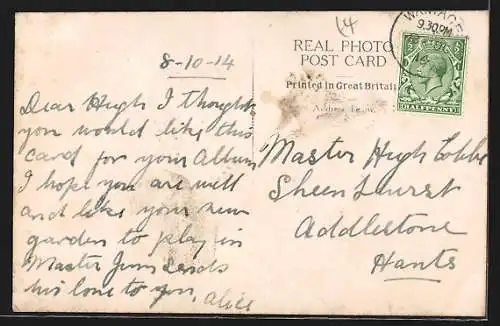 14
WANTAGE
9.30PM
REAL PHOTO
POST CARD
Printed in Great Britain
Address Only
HALFPENNY
8-10-14
Dear Hugh I thought
you would like this
card for your Album
I hope you are well
and like your new
garden to play in
Master Jim sends
his love to you. Alice
Master Hugh Cobbe
Sheenhurst
Addlestone
Hants